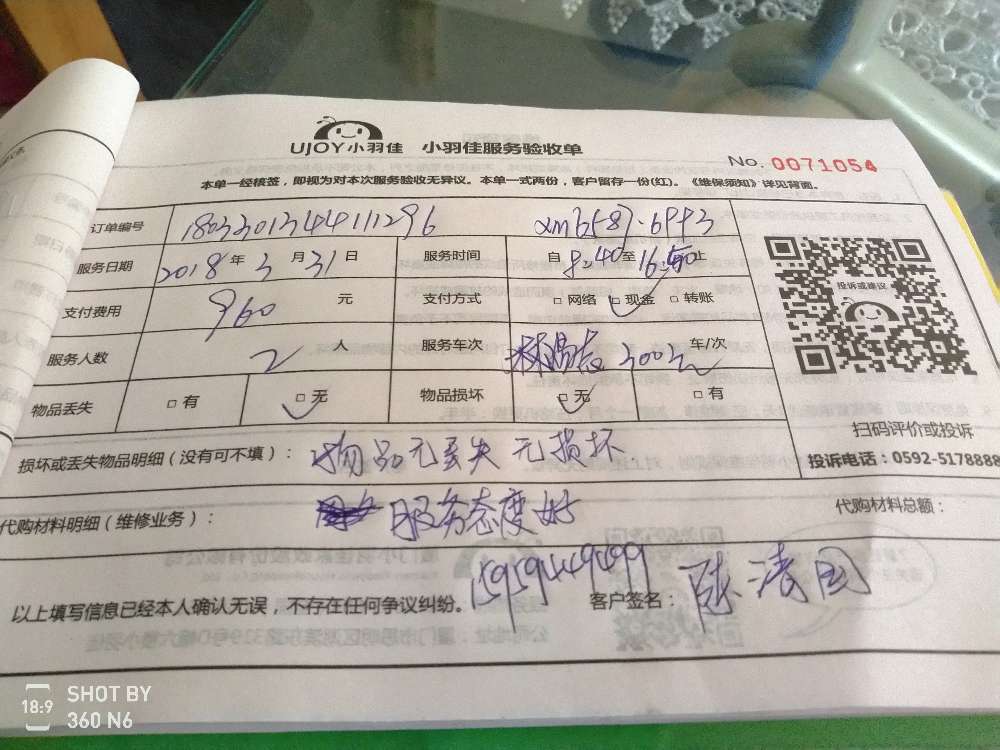 UJOY小羽佳 小羽佳服务验收单
No. 0071054
本单一经核签，即视为对本次服务验收无异议。本单一式两份，客户留存一份(红)。《维保须知》详见背面。
订单编号 180330134411296
服务日期 2018 年 3 月 31 日 服务时间 自 8:40 至 止
支付费用 960 元 支付方式 □ 网络 □ 现金 □ 转账
服务人数 2 人 服务车次 车/次
物品丢失 □ 有 □ 无 物品损坏 □ 无 □ 有
投诉或建议
扫码评价或投诉
投诉电话：0592-5178888
损坏或丢失物品明细（没有可不填）： 物品无丢失 无损坏
代购材料明细（维修业务）： 服务态度好 代购材料总额：
以上填写信息已经本人确认无误，不存在任何争议纠纷。 15959449499 客户签名：
18:9 SHOT BY
360 N6